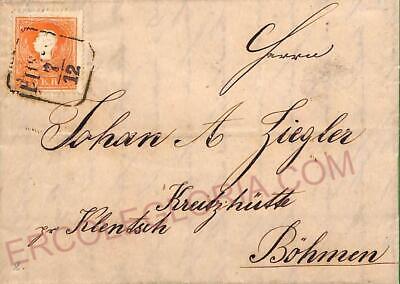 Herrn
Johan A Ziegler
Kreutzhütte
pr Klentsch
Böhmen
12
ERCOLEGLORIA.COM